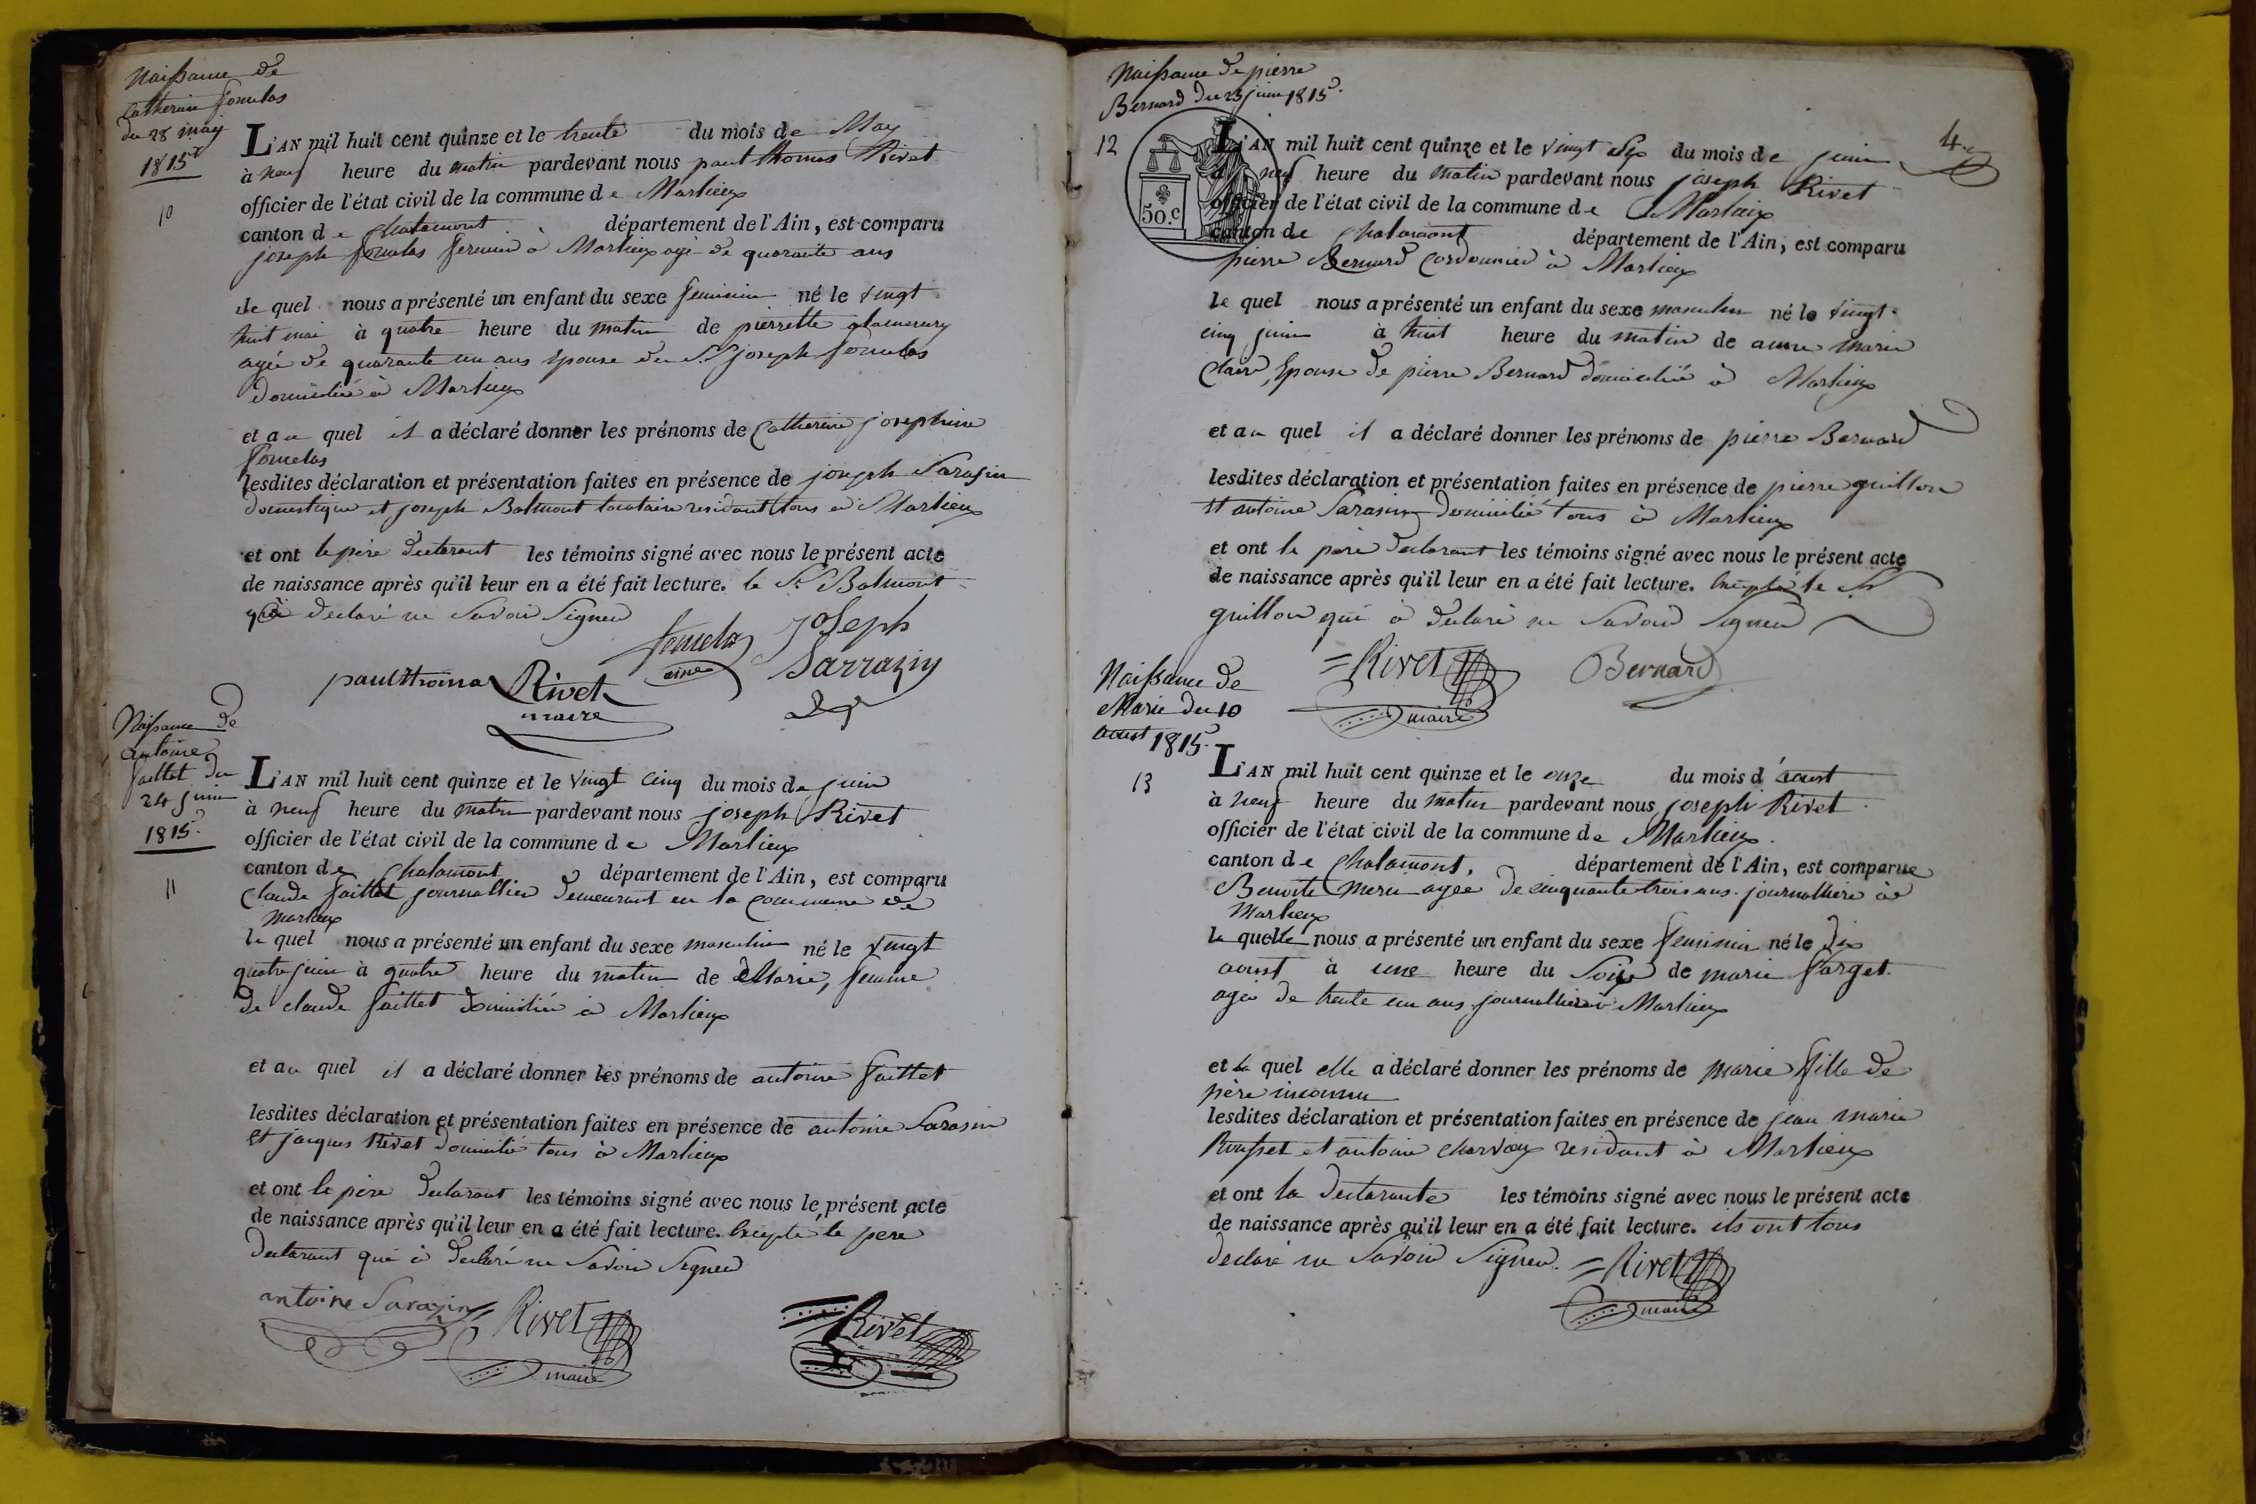 Naissance de
Catherine fomelas
du 28 may
1815
10
L'AN mil huit cent quinze et le trente du mois de May
à neuf heure du matin pardevant nous paul thomas Rivet
officier de l'état civil de la commune de Marlieux
canton de chalamont département de l'Ain, est comparu
joseph fomelas fermier à Marlieux agé de quarante ans
le quel nous a présenté un enfant du sexe feminin né le vingt
huit mai à quatre heure du matin de pierrette
agée de quarante un ans epouse du Sr joseph fomelas
domicilié à Marlieux
et au quel il a déclaré donner les prénoms de Catherine josephine
fomelas
lesdites déclaration et présentation faites en présence de joseph Sarasin
domestique et joseph Balmont locataire residant tous à Marlieux
et ont le père declarant les témoins signé avec nous le présent acte
de naissance après qu'il leur en a été fait lecture. le Sr Balmont
qui à declaré ne Savoir Signer
fomelas ainé
JOSeph Sarrazin
paul thomas Rivet
maire
Naissance de
antoine
faillet du
24 juin
1815
11
L'AN mil huit cent quinze et le vingt cinq du mois de juin
à neuf heure du matin pardevant nous joseph Rivet
officier de l'état civil de la commune de Marlieux
canton de Chalamont département de l'Ain, est comparu
Claude faillet journallier demeurant en la commune de
Marlieux
le quel nous a présenté un enfant du sexe masculin né le vingt
quatre juin à quatre heure du matin de Marie, femme
de claude faillet domicilié à Marlieux
et au quel il a déclaré donner les prénoms de antoine faillet
lesdites déclaration et présentation faites en présence de antoine Sarasin
et jacques Rivet domicilié tous à Marlieux
et ont le père declarant les témoins signé avec nous le présent acte
de naissance après qu'il leur en a été fait lecture. Excepté le pere
declarant qui à declaré ne Savoir Signer
antoine Sarazin
Rivet
maire
Rivet
Naissance de pierre
Bernard du 25 juin 1815
12
50.c
4
L'AN mil huit cent quinze et le vingt Six du mois de juin
à neuf heure du matin pardevant nous joseph Rivet
officier de l'état civil de la commune de Marlieux
canton de chalamont département de l'Ain, est comparu
pierre Bernard Cordonnier à Marlieux
le quel nous a présenté un enfant du sexe masculin né le vingt
cinq juin à huit heure du matin de anne marie
Claire, Epouse de pierre Bernard domicilié à Marlieux
et au quel il a déclaré donner les prénoms de pierre Bernard
lesdites déclaration et présentation faites en présence de pierre guillon
et antoine Sarasin domicilié tous à Marlieux
et ont le père declarant les témoins signé avec nous le présent acte
de naissance après qu'il leur en a été fait lecture. Excepté le Sr
guillon qui à declaré ne Savoir Signer
Rivet
maire
Bernard
Naissance de
Marie du 10
aoust 1815
13
L'AN mil huit cent quinze et le onze du mois d'aoust
à neuf heure du matin pardevant nous joseph Rivet
officier de l'état civil de la commune de Marlieux
canton de Chalamont, département de l'Ain, est comparue
Benoite agée de cinquante trois ans journalliere à
Marlieux
la quelle nous a présenté un enfant du sexe feminin né le dix
aoust à une heure du Soir de marie farget
agée de trente un ans journalliere à Marlieux
et la quel elle a déclaré donner les prénoms de marie fille de
père inconnu
lesdites déclaration et présentation faites en présence de jean marie
Rousset et antoine residant à Marlieux
et ont la declarante les témoins signé avec nous le présent acte
de naissance après qu'il leur en a été fait lecture. ils ont tous
declaré ne Savoir Signer.
Rivet
maire